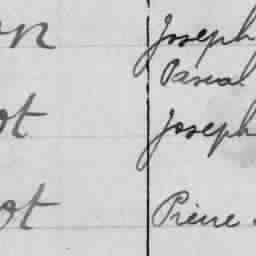 on Joseph
Pascal
ot Joseph
ot Pierre